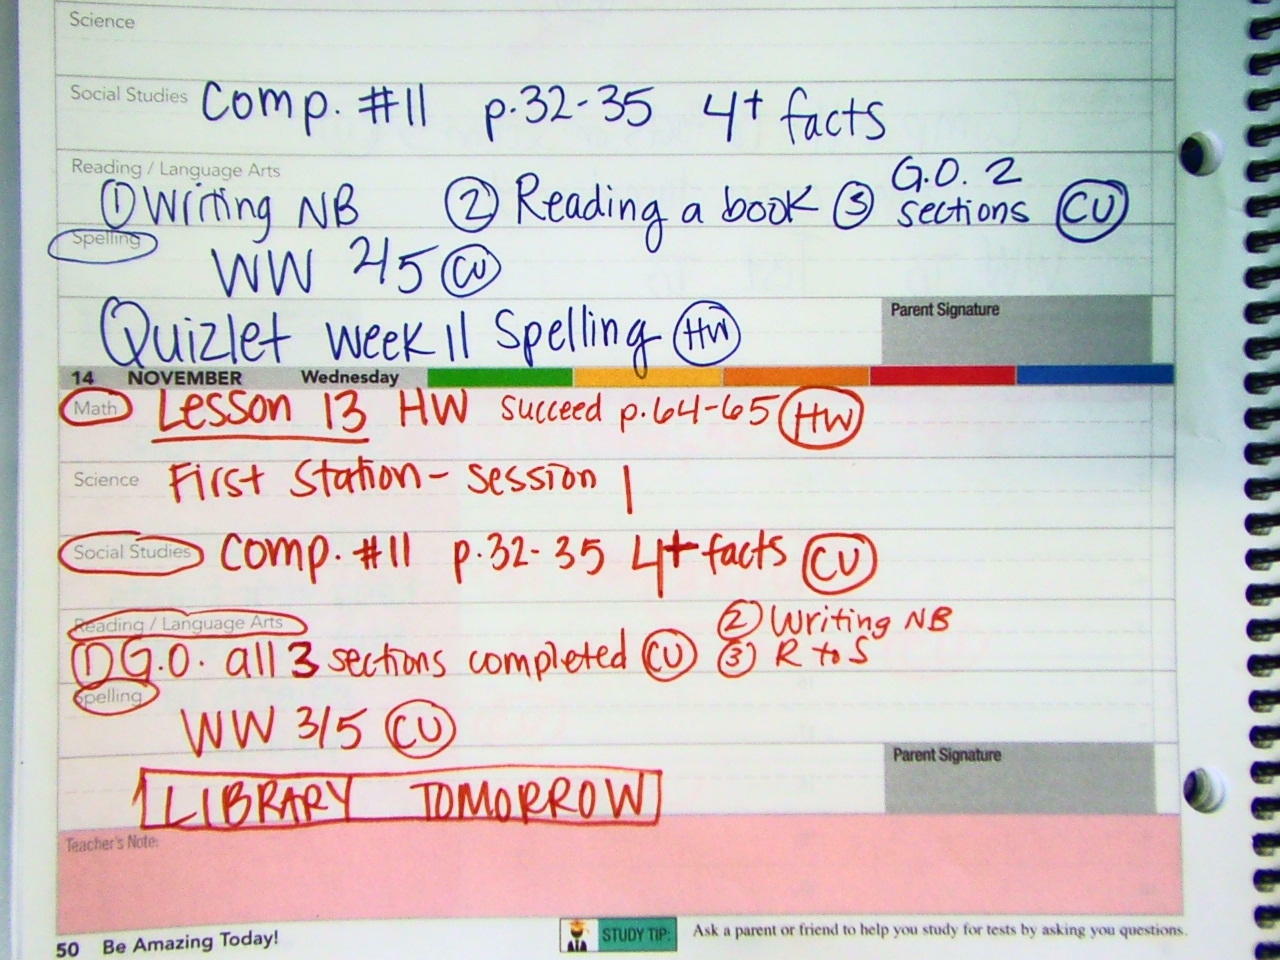 Science
Social Studies Comp. #11 p.32-35 4+ facts
Reading / Language Arts
① Writing NB ② Reading a book ③ G.O. 2 sections CU
Spelling
WW 2/5 CU
Quizlet week 11 Spelling HW
Parent Signature
14 NOVEMBER Wednesday
Math Lesson 13 HW succeed p.64-65 HW
Science First Station - Session 1
Social Studies Comp. #11 p.32-35 4+ facts CU
Reading / Language Arts
① G.O. all 3 sections completed CU ② Writing NB
③ R to S
Spelling
WW 3/5 CU
Parent Signature
LIBRARY TOMORROW
Teacher's Note:
50 Be Amazing Today!
STUDY TIP: Ask a parent or friend to help you study for tests by asking you questions.